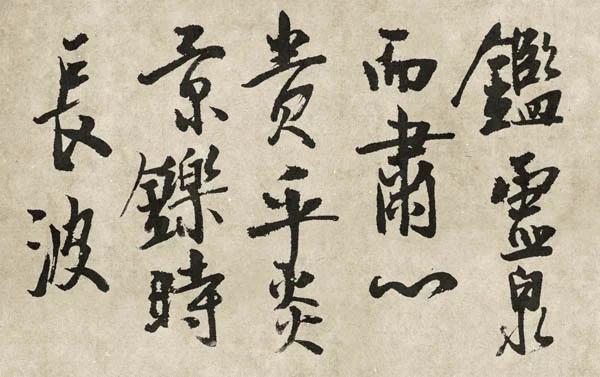 鑑靈泉
而肅心
貴平炎
景鑠時
長波